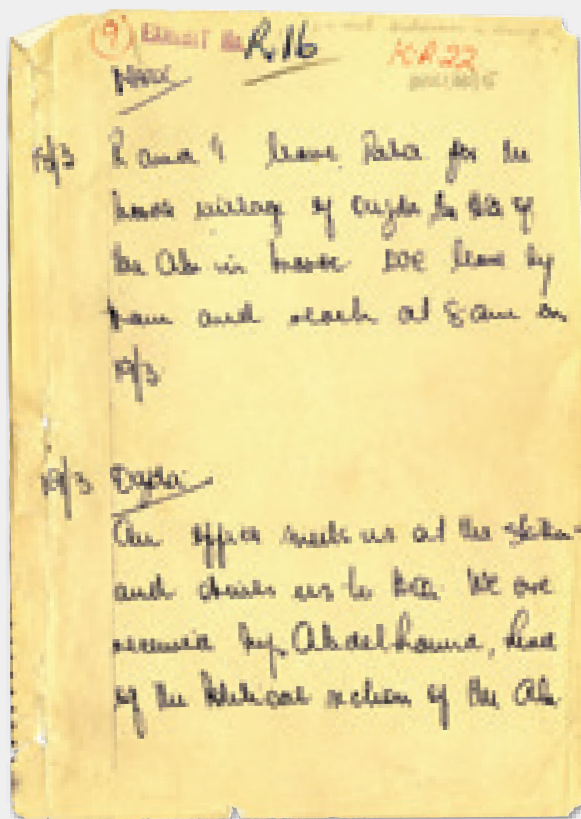 9 EXHIBIT No R.16
KA22
18/3 R and I leave Rabat for the
of Oujda the HQ of
the ALN in We leave by
train and reach at 8 am on
19/3
19/3 Oujda
An officer meets us at the station
and drives us to HQ. We are
received by Abdelhamid, head
of the Political section of the ALN